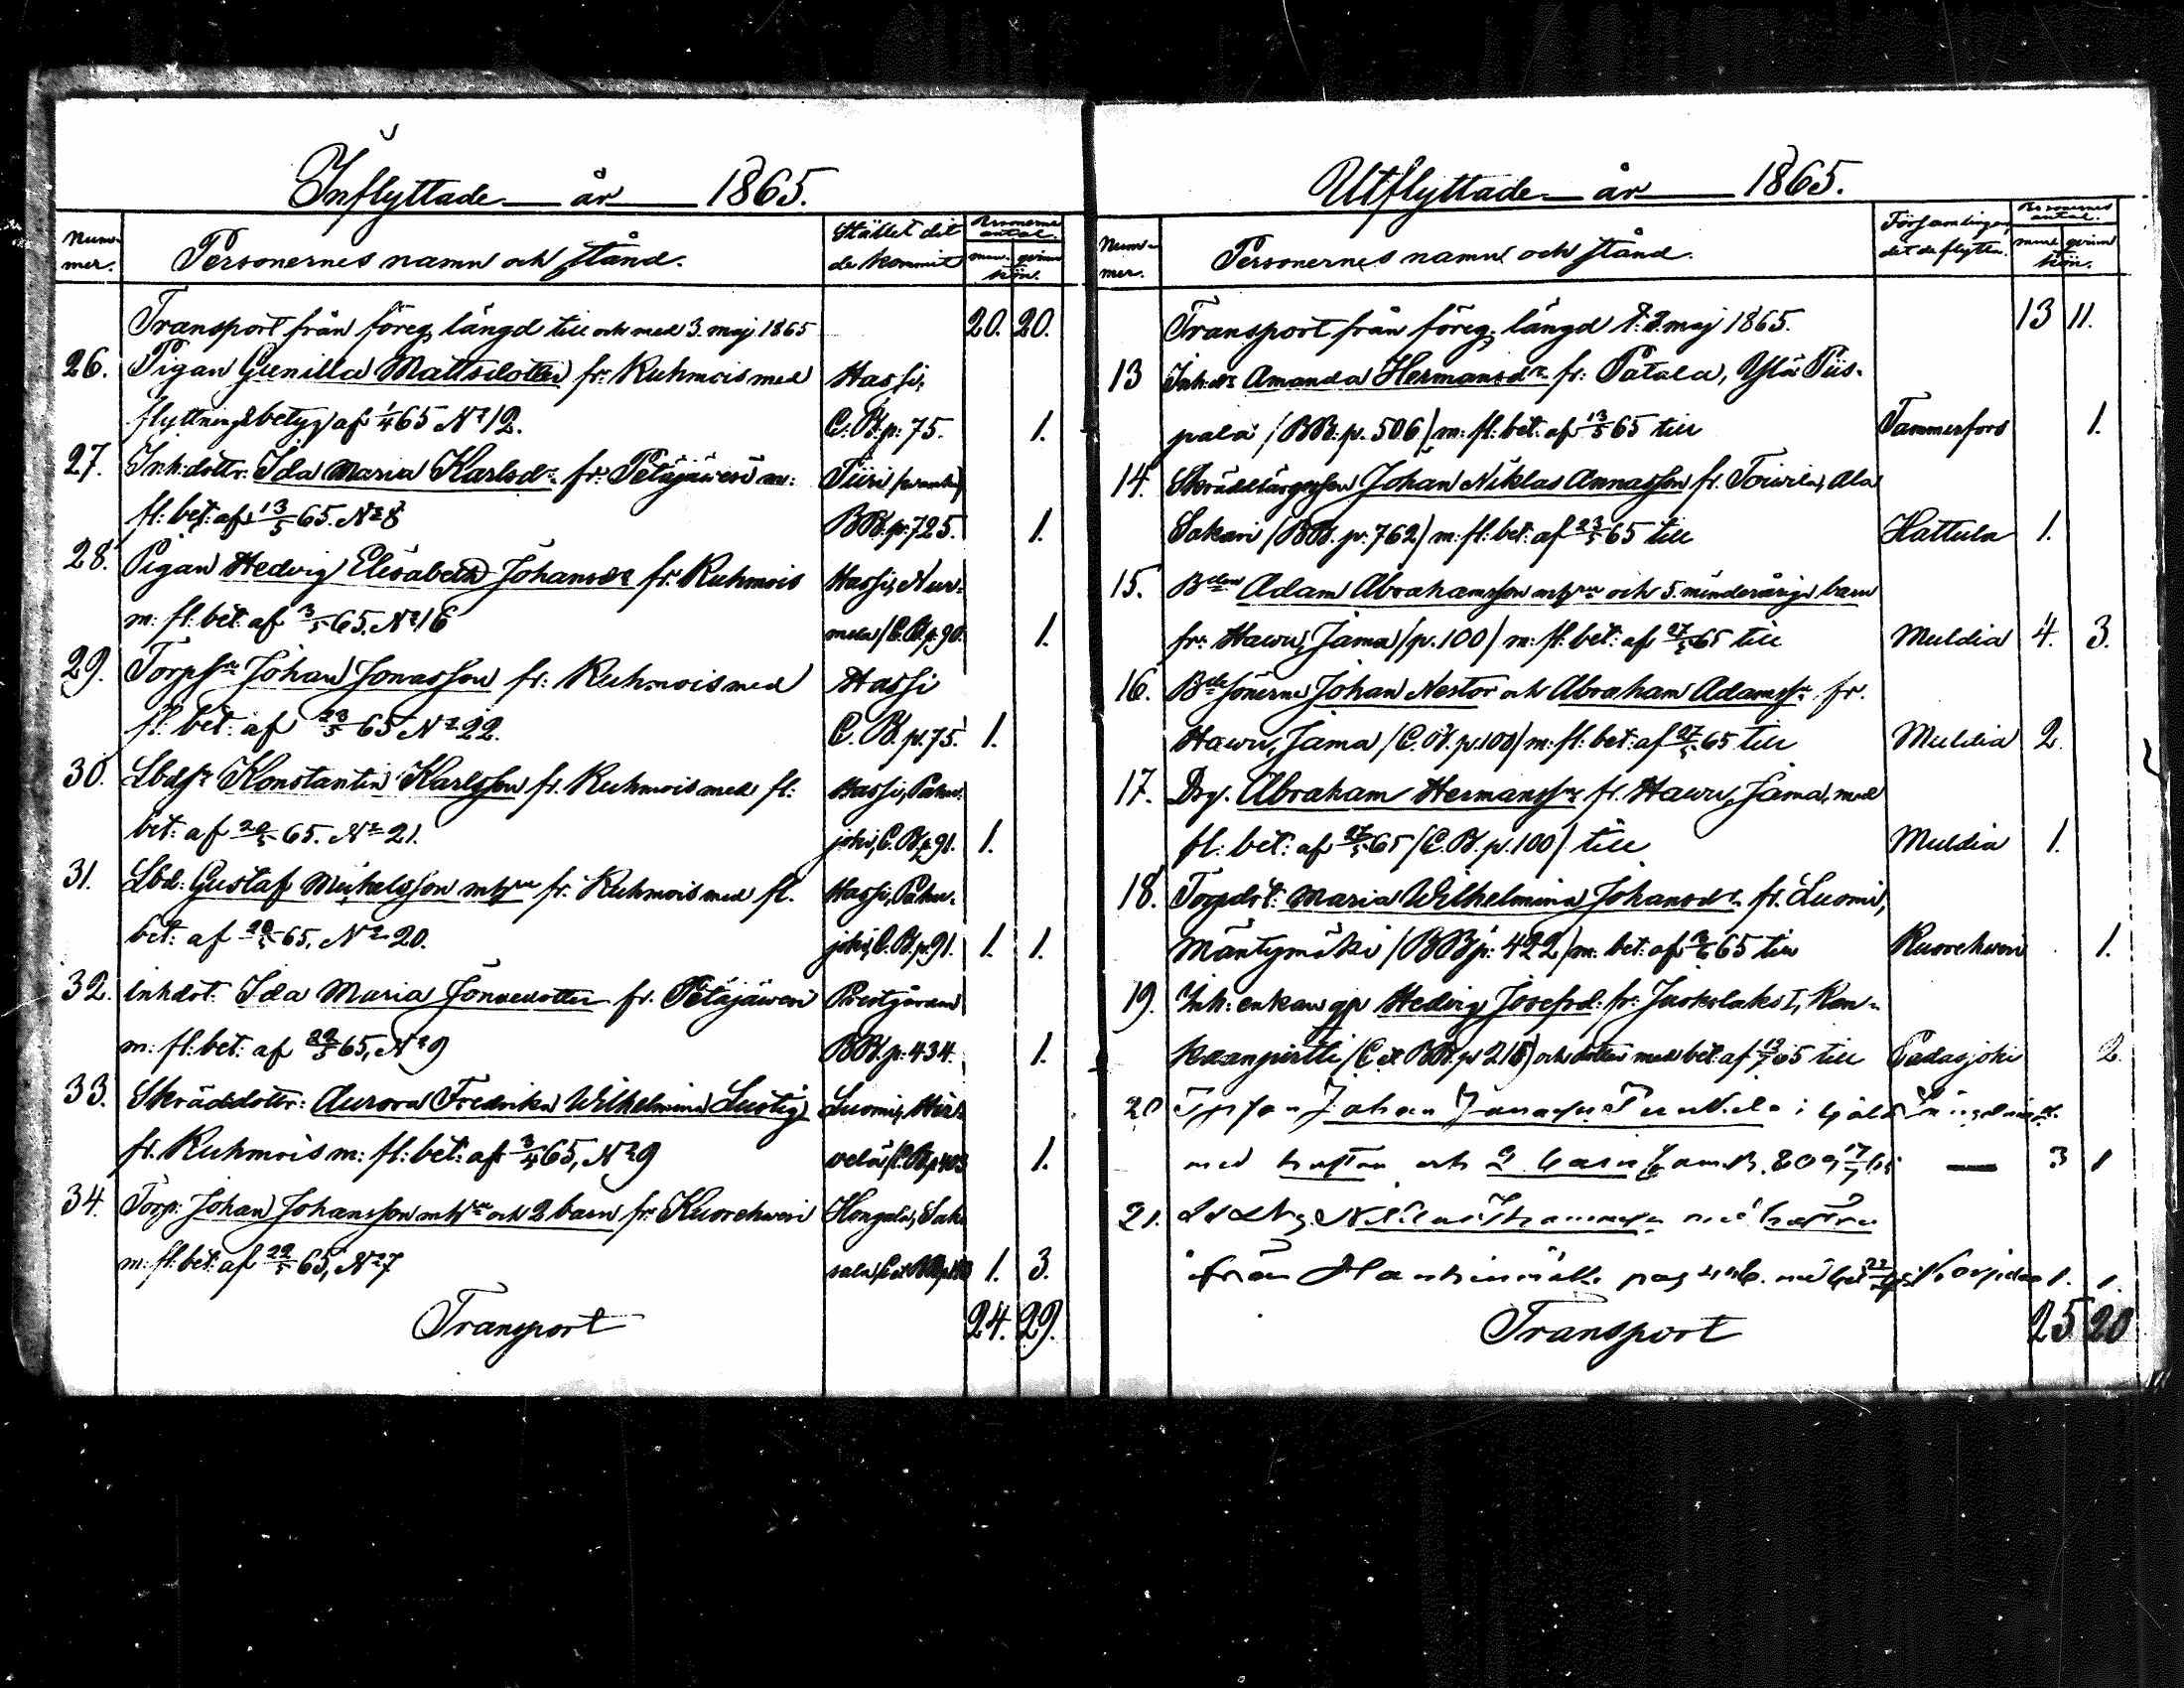 Inflyttade år 1865.
Num-
mer.
Personernes namn och stånd.
Stället dit
de kommit
Personernes
antal.
mur. qvinn
kön.
Transport från föreg. längd till och med 3. maj 1865
20. 20.
26. Pigan Gunilla Mattsdotter fr. Kuhmois med Hassi,
flyttningsbetyg af 1/4 65 No 12. C. B. p: 75. 1.
27. Inh:dottr. Ida Maria Karlsdr. fr. Petäjäwesi m: Tiiri
fl: bet: af 13/5 65. No 8 BB. p: 725. 1.
28. Pigan Hedvig Elisabeth Johansdr fr. Kuhmois Hassi, Nur-
m: fl: bet: af 3/5 65. No 16 mela /C. B. p. 90. 1.
29. Torpsn Johan Jonasson fr: Kuhmois med Hassi
fl: bet: af 23/5 65 No 22. C. B. p. 75. 1.
30. Lbdsn Konstantin Karlsson fr. Kuhmois med fl: Hassi, Pahu-
bet: af 20/5 65. No 21. joki, C. B. p. 91. 1.
31. Lbd: Gustaf Mickelsson m hu fr. Kuhmois med fl. Hassi, Pahu-
bet: af 20/5 65. No 20. joki, C. B. p. 91. 1. 1.
32. inhdot. Ida Maria Jonaedotter fr. Petäjäwesi Prestgården
m: fl: bet: af 22/5 65, No 9 BB. p: 434. 1.
33. Skräddottr: Aurora Fredrika Wilhelmina Lustig Luomi, Hir-
fr. Kuhmois m: fl: bet: af 3/4 65, No 9 velä 1.
34. Torp: Johan Johansson m hu och 2 barn fr. Kuorehwesi Hongola, Saka
m: fl: bet: af 22/5 65, No 7 1. 3.
Transport 24. 29.
Utflyttade år 1865.
Num-
mer.
Personernes namn och stånd.
Församlingen
dit de flyttat.
Personernes
antal.
mur. qvinn
kön.
Transport från föreg. längd t: 3. maj 1865. 13 11.
13 Inh:dr Amanda Hermansdr fr: Patala, Ylä Piis-
pala /BB: p. 506/ m: fl: bet: af 13/5 65 till Tammerfors 1.
14. Johan Niklas Annasson fr. Toivila, Ala
Sakari /BB. p: 762/ m: fl: bet: af 23/5 65 till Hattula 1.
15. Bden Adam Abrahamsson m hu och 5. minderåriga barn
fr. Hawu, Jama /p. 100/ m: fl: bet: af 27/5 65 till Muldia 4. 3.
16. Bde sönerne Johan Nestor och Abraham Adamssr fr.
Hawu, Jama /C. B. p. 100/ m: fl: bet: af 27/5 65 till Muldia 2.
17. Drg. Abraham Hermanssn fr. Hawu, Jama, med
fl: bet: af 27/5 65 /C. B. p. 100/ till Muldia 1.
18. Torpdot: Maria Wilhelmina Johansdr fr. Luomi,
Mäntymäki /BB p: 422/ m: bet: af 3/6 65 till Kuorehwesi 1.
19. Inh: enkan Hedvig Josefsd: fr: Juokslaks I, Kan-
kaanpirtti /C et BB. p. 218/ och dotter med bet. af 13/7 65 till Padasjoki 2.
20 Johan
med hustru och 2 barn 17/7 65 3 1
21. med hustru
från pag. med bet 22/7 1. 1.
Transport 25 20